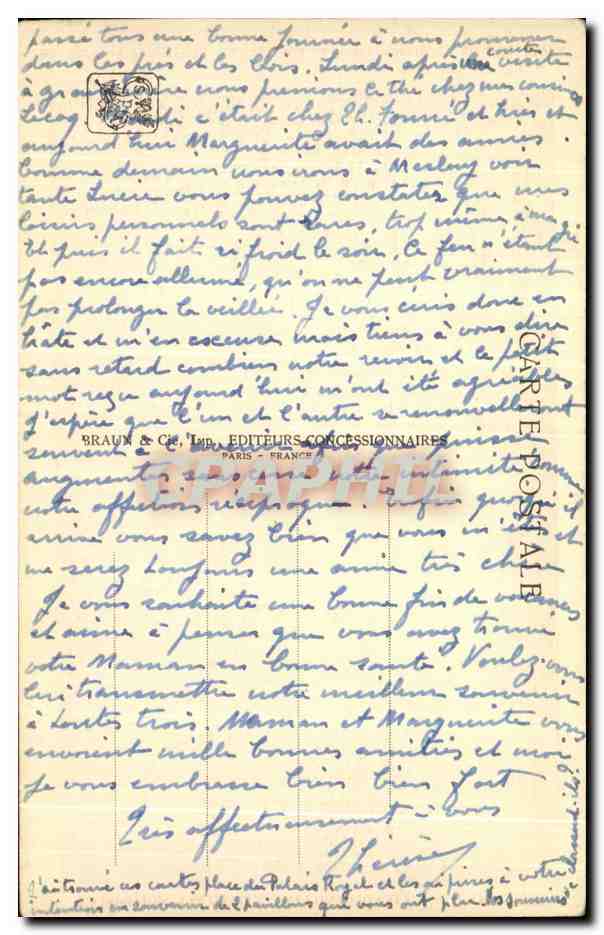 passé tous une bonne journée à nous promener
dans les prés et les bois. Lundi après une courte visite
à nous prenions le thé chez mes cousines
Lecoq c'était chez Ch. Fourré et hier et
aujourd'hui Marguerite avait des amies.
Comme demain nous irons à Meslay voir
tante Lucie vous pouvez constater que mes
loisirs personnels sont rares, trop même à mon gré
Et puis il fait si froid le soir, le feu n'étant
pas encore allumé, qu'on ne peut vraiment
pas prolonger la veillée. Je vous écris donc en
hâte et m'en excuse mais tiens à vous dire
sans retard combien notre revoir et le petit
mot reçu aujourd'hui m'ont été agréables
J'espère que l'un et l'autre se renouvelleront
souvent à l'avenir afin que puisse
BRAUN & Cie, Imp. EDITEURS-CONCESSIONNAIRES
PARIS - FRANCE
augmenter sans cesse notre intimité comme
notre affection réciproque. Enfin quoiqu'il
arrive vous savez bien que vous m'êtes et
me serez toujours une amie très chère
Je vous souhaite une bonne fin de vacances
et aime à penser que vous avez trouvé
votre Maman en bonne santé. Voulez-vous
lui transmettre notre meilleur souvenir
à toutes trois. Maman et Marguerite vous
envoient mille bonnes amitiés et moi
je vous embrasse bien bien fort
Très affectueusement à vous
Thérèse
J'ai trouvé ces cartes place du Palais Royal et les ai prises à votre
intention en souvenir de 2 pavillons que vous ont plu. les souvenirs
CARTE POSTALE
CAPHIL